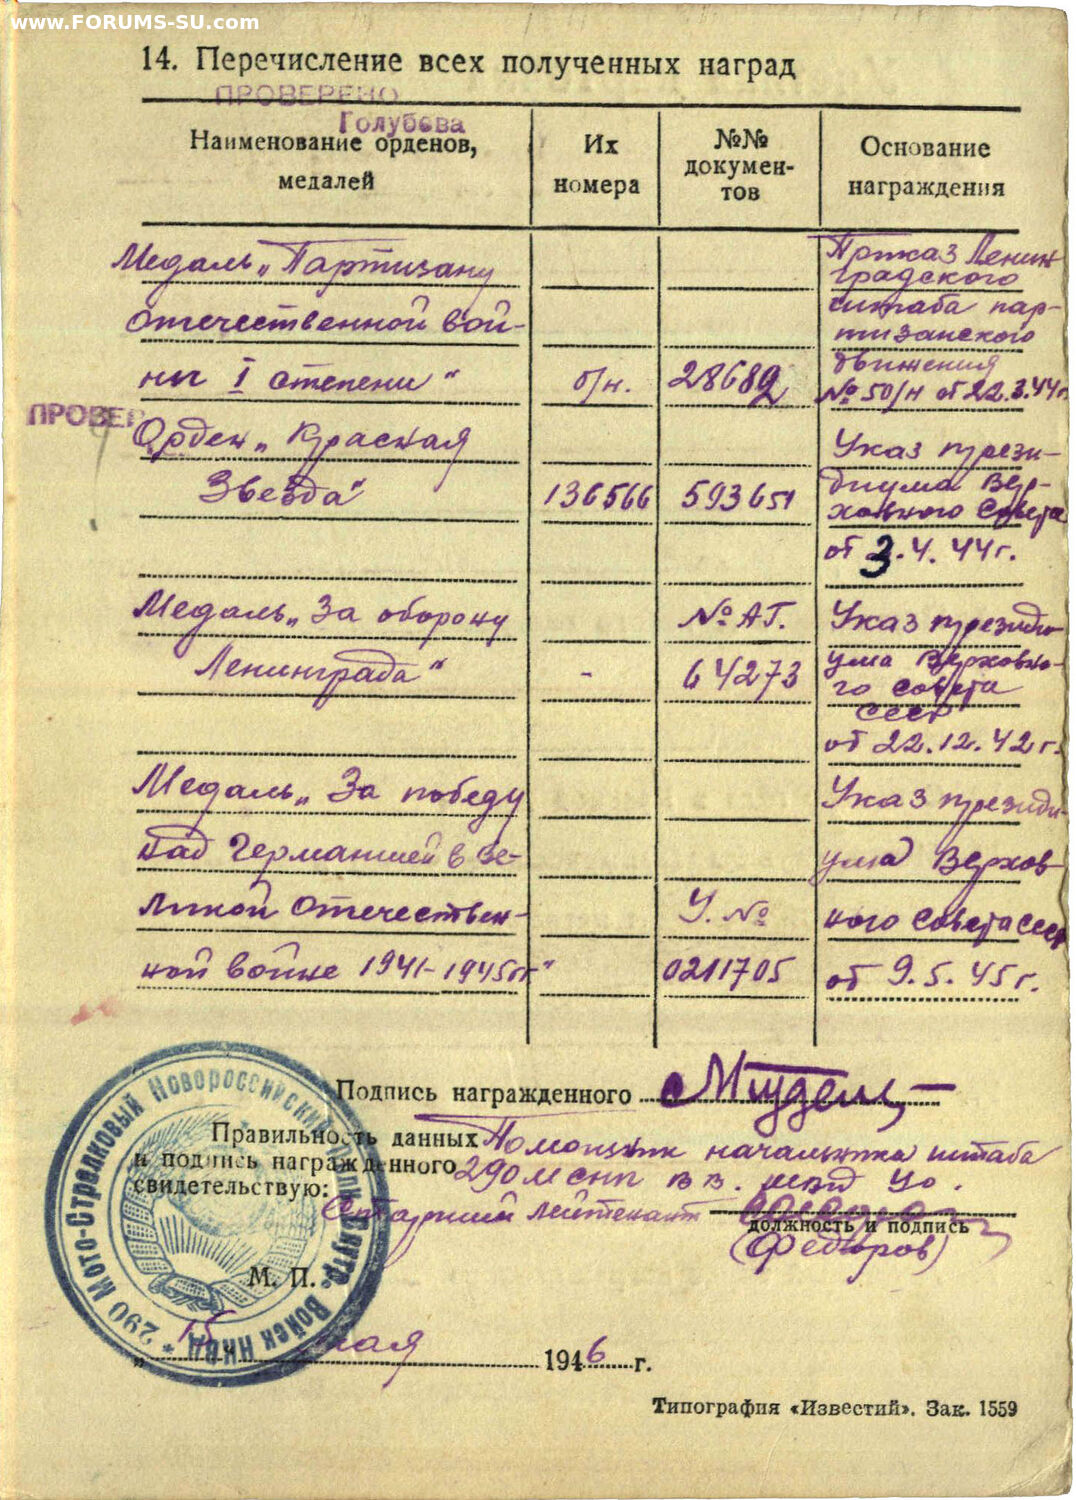 www.FORUMS-SU.com
14. Перечисление всех полученных наград
ПРОВЕРЕНО
Голубева
Наименование орденов, медалей
Их номера
№№ докумен-
тов
Основание награждения
Медаль „Партизану
Отечественной вой-
ны I степени“ б/н. 28689
Приказ Ленин
градского
штаба пар-
тизанского
движения
№ 50/н от 22.3.44г.
ПРОВЕР
Орден „Красная
Звезда“ 136566 593651
Указ прези-
диума Вер-
ховного Совета
от 3.4.44г.
Медаль „За оборону
Ленинграда“ - № АГ. 64273
Указ президи
ума Верховно-
го Совета
СССР
от 22.12.42г.
Медаль „За победу
над Германией в Ве-
ликой Отечествен-
ной войне 1941-1945гг“
У. №
0211705
Указ президи-
ума Верхов
ного Совета СССР
от 9.5.45г.
Подпись награжденного
Правильность данных
и подпись награжденного
свидетельствую:
Помощник начальника штаба
290 мсп вв. МВД
Старший лейтенант
должность и подпись
(Федоров)
М. П.
290 Мото-Стрелковый Новороссийский полк Внутр. Войск НКВД *
„15“ мая 1946 г.
Типография «Известий». Зак. 1559